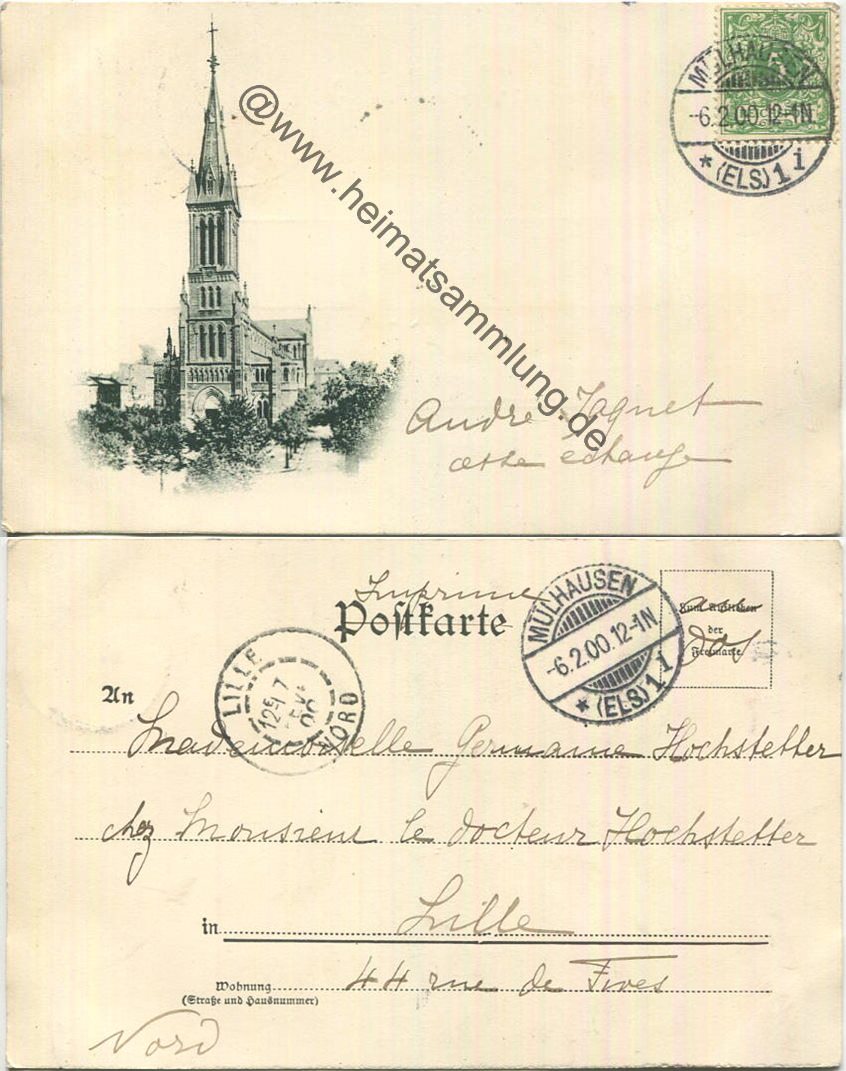 MÜLHAUSEN
-6.2.00.12-1N
* (ELS) 1 i
@www.heimatsammlung.de
Andre Jagnet
cette échange
Imprimé
Postkarte
MÜLHAUSEN
-6.2.00.12-1N
* (ELS) 1 i
Zum Aufkleben
der
Freimarke
au
dos
LILLE
12
7
00
NORD
An
Mademoiselle Germaine Hochstetter
chez Monsieur le docteur Hochstetter
in Lille
Wohnung 44 rue de Fives
(Straße und Hausnummer)
Nord